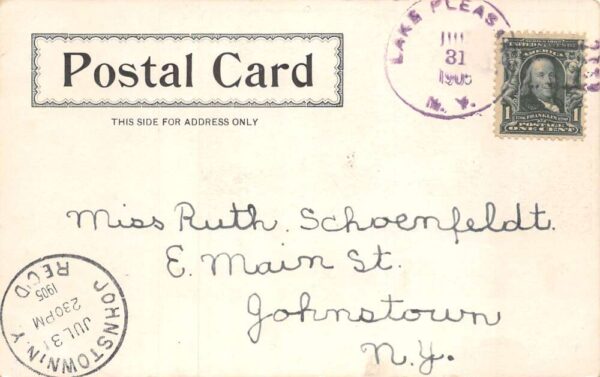 LAKE PLEAS
JUL
31
1905
N. Y.
UNITED STATES
OF AMERICA
FRANKLIN
1 POSTAGE 1
ONE CENT
Postal Card
THIS SIDE FOR ADDRESS ONLY
Miss Ruth Schoenfeldt.
E. Main St.
Johnstown
N.Y.
JOHNSTOWN N.Y.
JUL 31
230PM
1905
REC'D